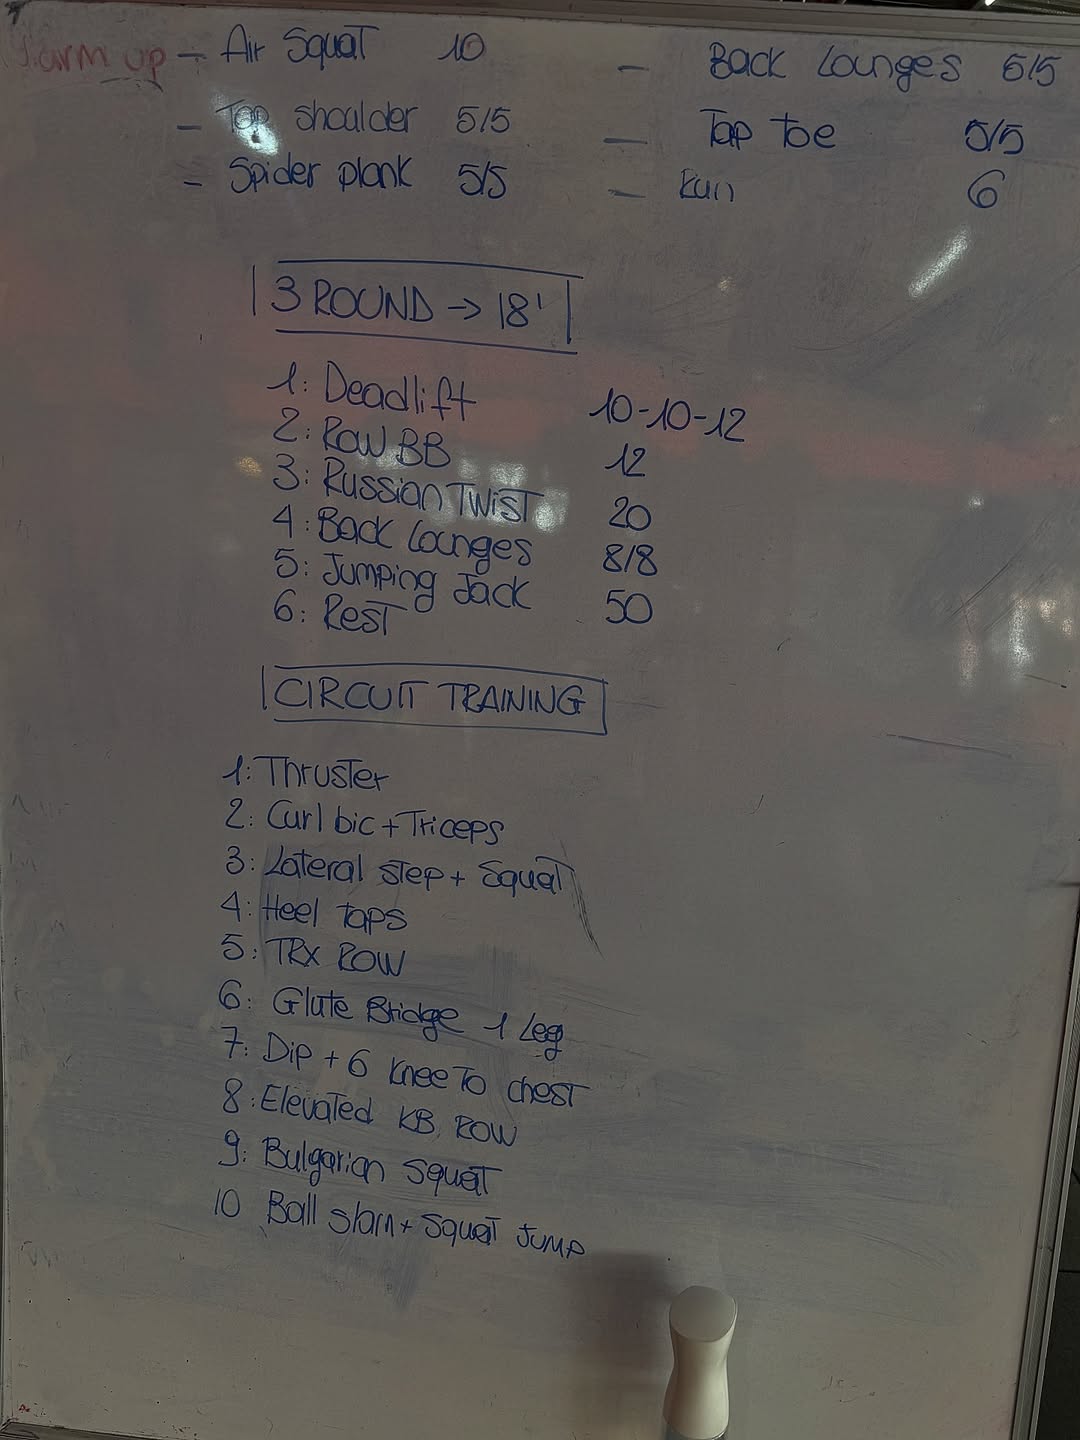 Warm up - Air Squat 10
- Tap shoulder 5/5
- Spider plank 5/5
- Back Lounges 5/5
- Tap toe 5/5
- Run 6
3 ROUND → 18'
1: Deadlift 10-10-12
2: Row BB 12
3: Russian Twist 20
4: Back Lounges 8/8
5: Jumping Jack 50
6: Rest
CIRCUIT TRAINING
1: Thruster
2: Curl bic + Triceps
3: Lateral step + Squat
4: Heel taps
5: TRX ROW
6: Glute Bridge 1 Leg
7: Dip + 6 Knee To chest
8: Elevated KB ROW
9: Bulgarian squat
10 Ball slam + Squat Jump